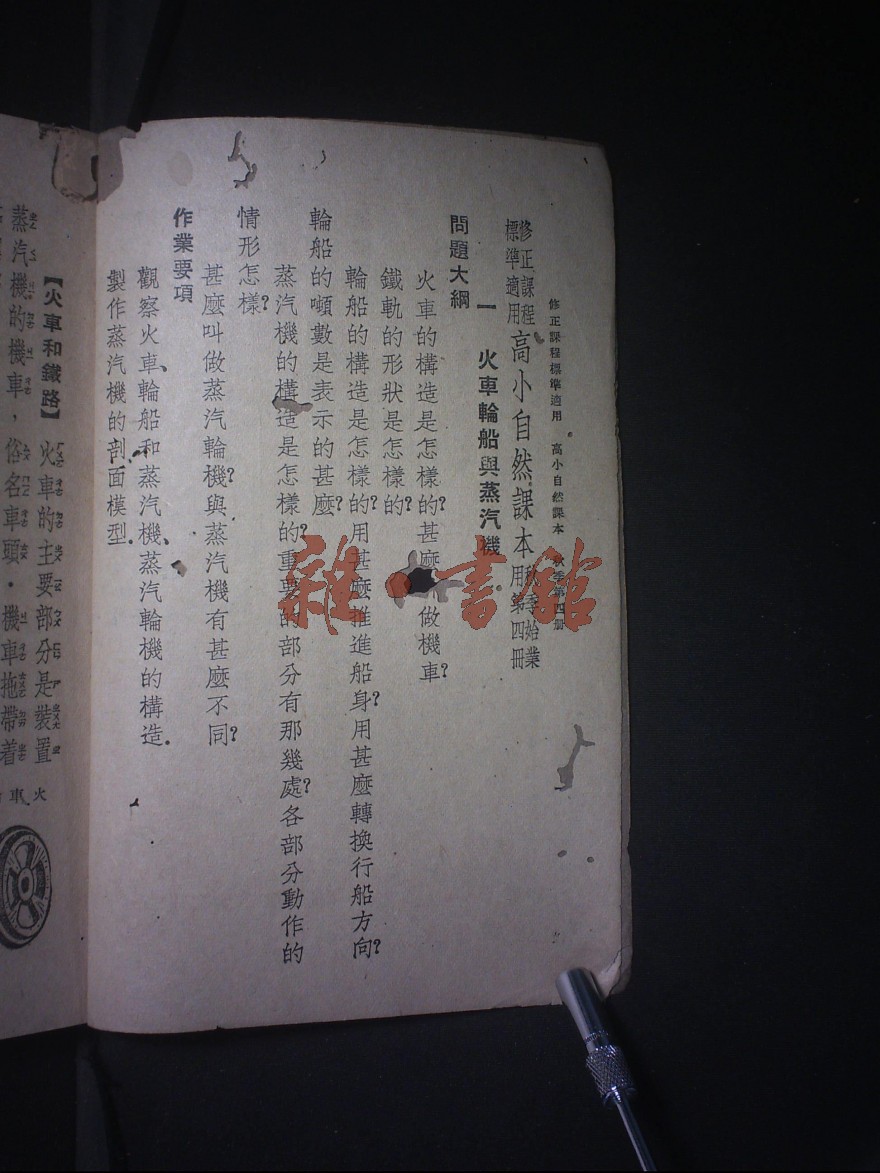 修正課程標準適用　高小自然課本　秋季第四册
修正課程標準適用高小自然課本秋季始業用第四冊
一　火車輪船與蒸汽機
問題大綱
火車的構造是怎樣的?甚麼 做機車?
鐵軌的形狀是怎樣的?
輪船的構造是怎樣的?用甚麼推進船身?用甚麼轉換行船方向?
輪船的噸數是表示的甚麼?
蒸汽機的構造是怎樣的?重要的部分有那幾處?各部分動作的
情形怎樣?
甚麼叫做蒸汽輪機?與蒸汽機有甚麼不同?
作業要項
觀察火車、輪船和蒸汽機、蒸汽輪機的構造.
製作蒸汽機的剖面模型.
【火車和鐵路】　火車的主要部分是裝置
蒸汽機的機車，俗名車頭.機車拖帶着
火車
雜書館